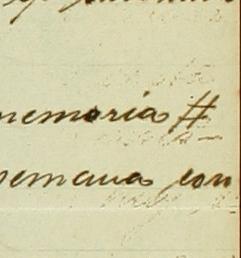 memoria #
semana con